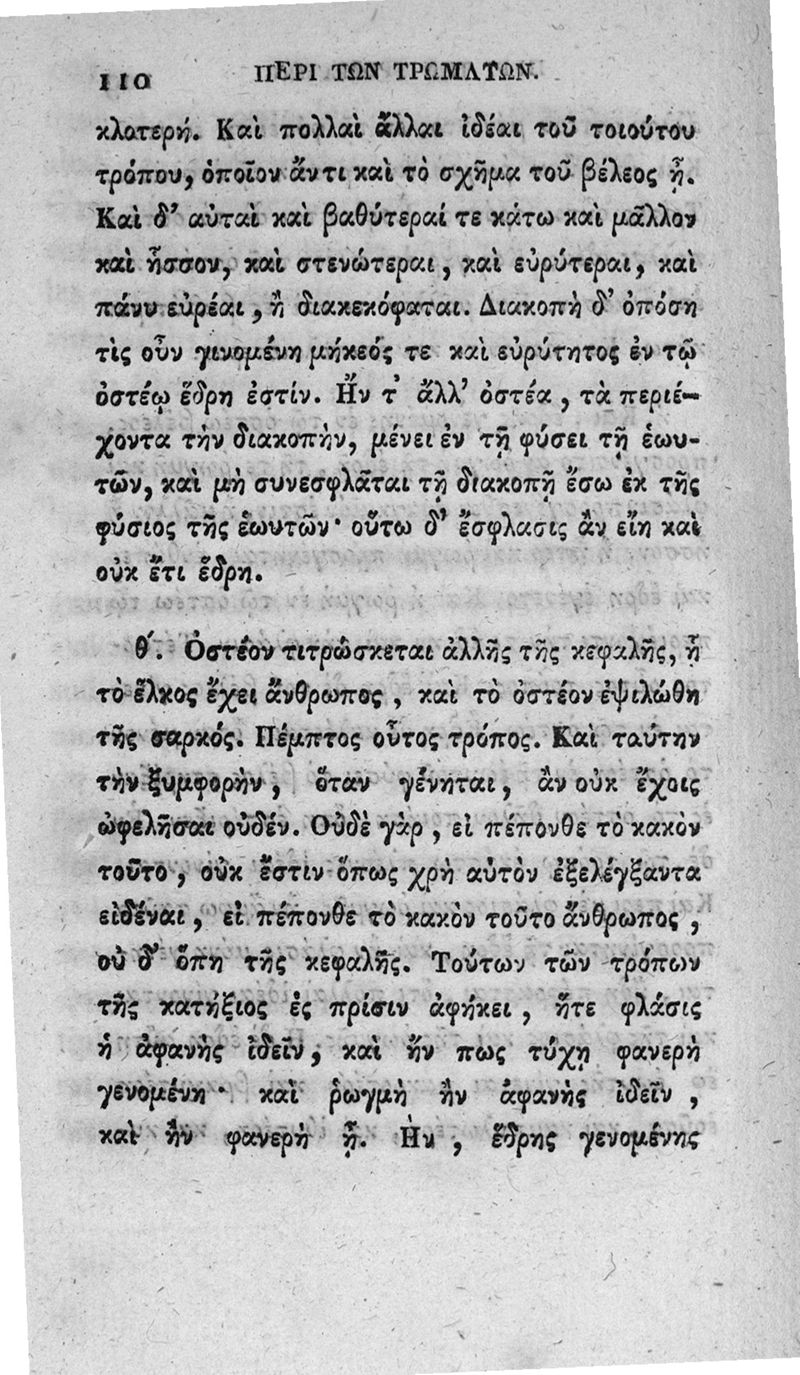 110 ΠΕΡΙ ΤΩΝ ΤΡΩΜΑΤΩΝ.
κλοτερή. Καὶ πολλαὶ ἄλλαι ἰδέαι τοῦ τοιούτου
τρόπου, ὁποῖον ἄν τι καὶ τὸ σχῆμα τοῦ βέλεος ᾖ.
Καὶ δ᾽ αὐταὶ καὶ βαθύτεραί τε κάτω καὶ μᾶλλον
καὶ ἧσσον, καὶ στενώτεραι, καὶ εὐρύτεραι, καὶ
πάνυ εὐρέαι, ἢ διακεκόφαται. Διακοπὴ δ᾽ ὀπόση
τὶς οὖν γινομένη μήκεός τε καὶ εὐρύτητος ἐν τῷ
ὀστέῳ ἕδρη ἐστίν. Ἢν τ᾽ ἄλλ᾽ ὀστέα, τὰ περιέ-
χοντα τὴν διακοπὴν, μένει ἐν τῇ φύσει τῇ ἑωυ-
τῶν, καὶ μὴ συνεσφλᾶται τῇ διακοπῇ ἔσω ἐκ τῆς
φύσιος τῆς ἑωυτῶν· οὕτω δ᾽ ἔσφλασις ἂν εἴη καὶ
οὐκ ἔτι ἕδρη.
θ΄. Ὀστέον τιτρώσκεται ἀλλῆς τῆς κεφαλῆς, ἢ
τὸ ἕλκος ἔχει ἄνθρωπος, καὶ τὸ ὀστέον ἐψιλώθη
τῆς σαρκός. Πέμπτος οὗτος τρόπος. Καὶ ταύτην
τὴν ξυμφορὴν, ὅταν γένηται, ἂν οὐκ ἔχοις
ὠφελῆσαι οὐδέν. Οὐδὲ γὰρ, εἰ πέπονθε τὸ κακὸν
τοῦτο, οὐκ ἔστιν ὅπως χρὴ αὐτὸν ἐξελέγξαντα
εἰδέναι, εἰ πέπονθε τὸ κακὸν τοῦτο ἄνθρωπος,
οὐ δ᾽ ὅπη τῆς κεφαλῆς. Τούτων τῶν τρόπων
τῆς κατήξιος ἐς πρίσιν ἀφήκει, ἥτε φλάσις
ἡ ἀφανὴς ἰδεῖν, καὶ ἤν πως τύχῃ φανερὴ
γενομένη· καὶ ῥωγμὴ ἢν ἀφανὴς ἰδεῖν,
καὶ ἢν φανερὴ ᾖ. Ἢν, ἕδρης γενομένης